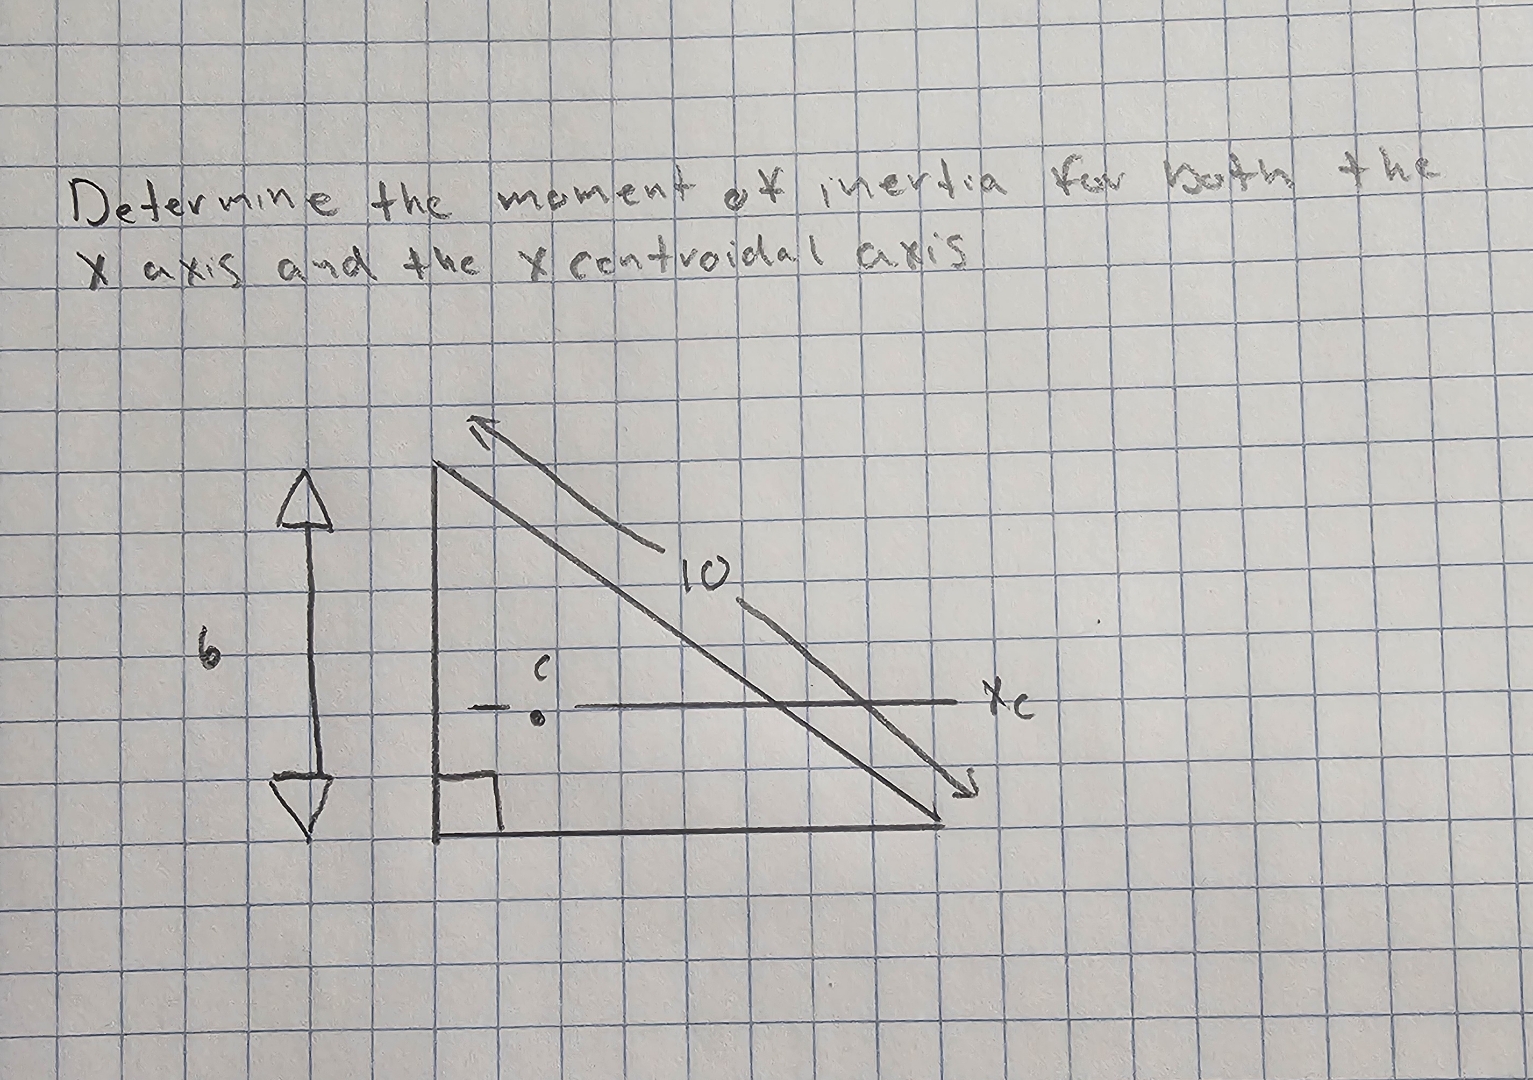 Determine the moment of inertia for both the
x axis and the x centroidal axis
10
6
c
xc